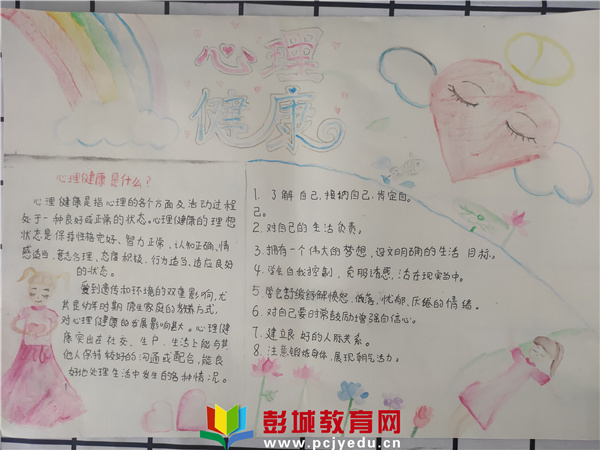 心理
健康
心理健康是什么?
心理健康是指心理的各个方面及活动过程
处于一种良好或正常的状态。心理健康的理想
状态是保持性格完好、智力正常、认知正确、情
感适当、意志合理、态度积极、行为适当、适应良好
的状态。
受到遗传和环境的双重影响,尤
其是幼年时期原生家庭的教养方式,
对心理健康的发展影响甚大。心理健
康突出在社交、生产、生活上能与其
他人保持较好的沟通或配合,能良
好地处理生活中发生的各种情况。
1. 了解自己,接纳自己,肯定自
己。
2. 对自己的生活负责。
3. 拥有一个伟大的梦想,设立明确的生活目标。
4. 学会自我控制,克明诱惑,活在现实当中。
5. 学会舒缓纾解愤怒、低落、忧郁、厌倦的情绪。
6. 对自己要时常鼓励,增强自信心。
7. 建立良好的人际关系。
8. 注意锻炼身体,展现朝气活力。
彭城教育网
www.pcjyedu.cn